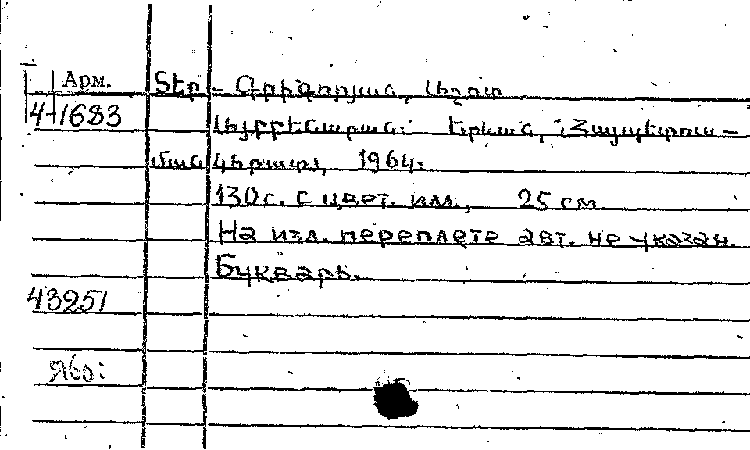 Арм.
4-1683
Տեր-Գրիգորյան, Աշոտ
Այբբենարան: Երևան, Հայպետուս-
ման կիրատ, 1964.
130 с. с цвет. илл., 25 см.
На изл. переплете авт. не указан.
Букварь.
43251